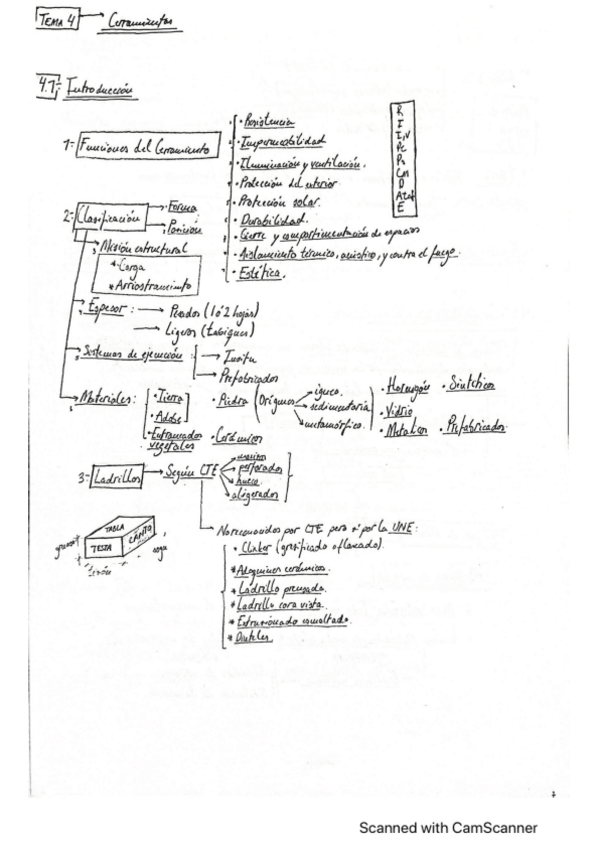 TEMA 4 → Cerramientos
4.1- Introducción
1- Funciones del Cerramiento
· Resistencia
· Impermeabilidad
· Iluminación y ventilación.
· Protección del exterior.
· Protección solar.
· Durabilidad.
· Cierre y compartimentación de espacios
· Aislamiento térmico, acústico, y contra el fuego.
· Estética.
R
I
I,V
Pe
Ps
D
E
2- Clasificación → Forma
→ Posición
→ Misión estructural
* Carga
* Arriostramiento
→ Espesor: → Pesados (1 ó 2 hojas)
→ Ligeros (Tabiques)
→ Sistemas de ejecución: → Insitu
→ Prefabricados
→ Materiales: · Tierra
· Adobe
· Entramados vegetales
· Piedra (Orígenes → ígneo.
→ sedimentaria
→ metamórfico.
· Cerámicos
· Hormigón · Sintéticos
· Vidrio
· Metálicos · Prefabricados.
3- Ladrillos → Según CTE → macizos
→ perforados
→ hueco
→ aligerados
→ No reconocidos por CTE pero si por la UNE:
· Clinker (gresificado o flameado).
* Adoquines cerámicos.
* Ladrillo prensado.
* Ladrillo cara vista.
* esmaltado.
TABLA
CANTO
TESTA
grueso
soga
tizón
Scanned with CamScanner